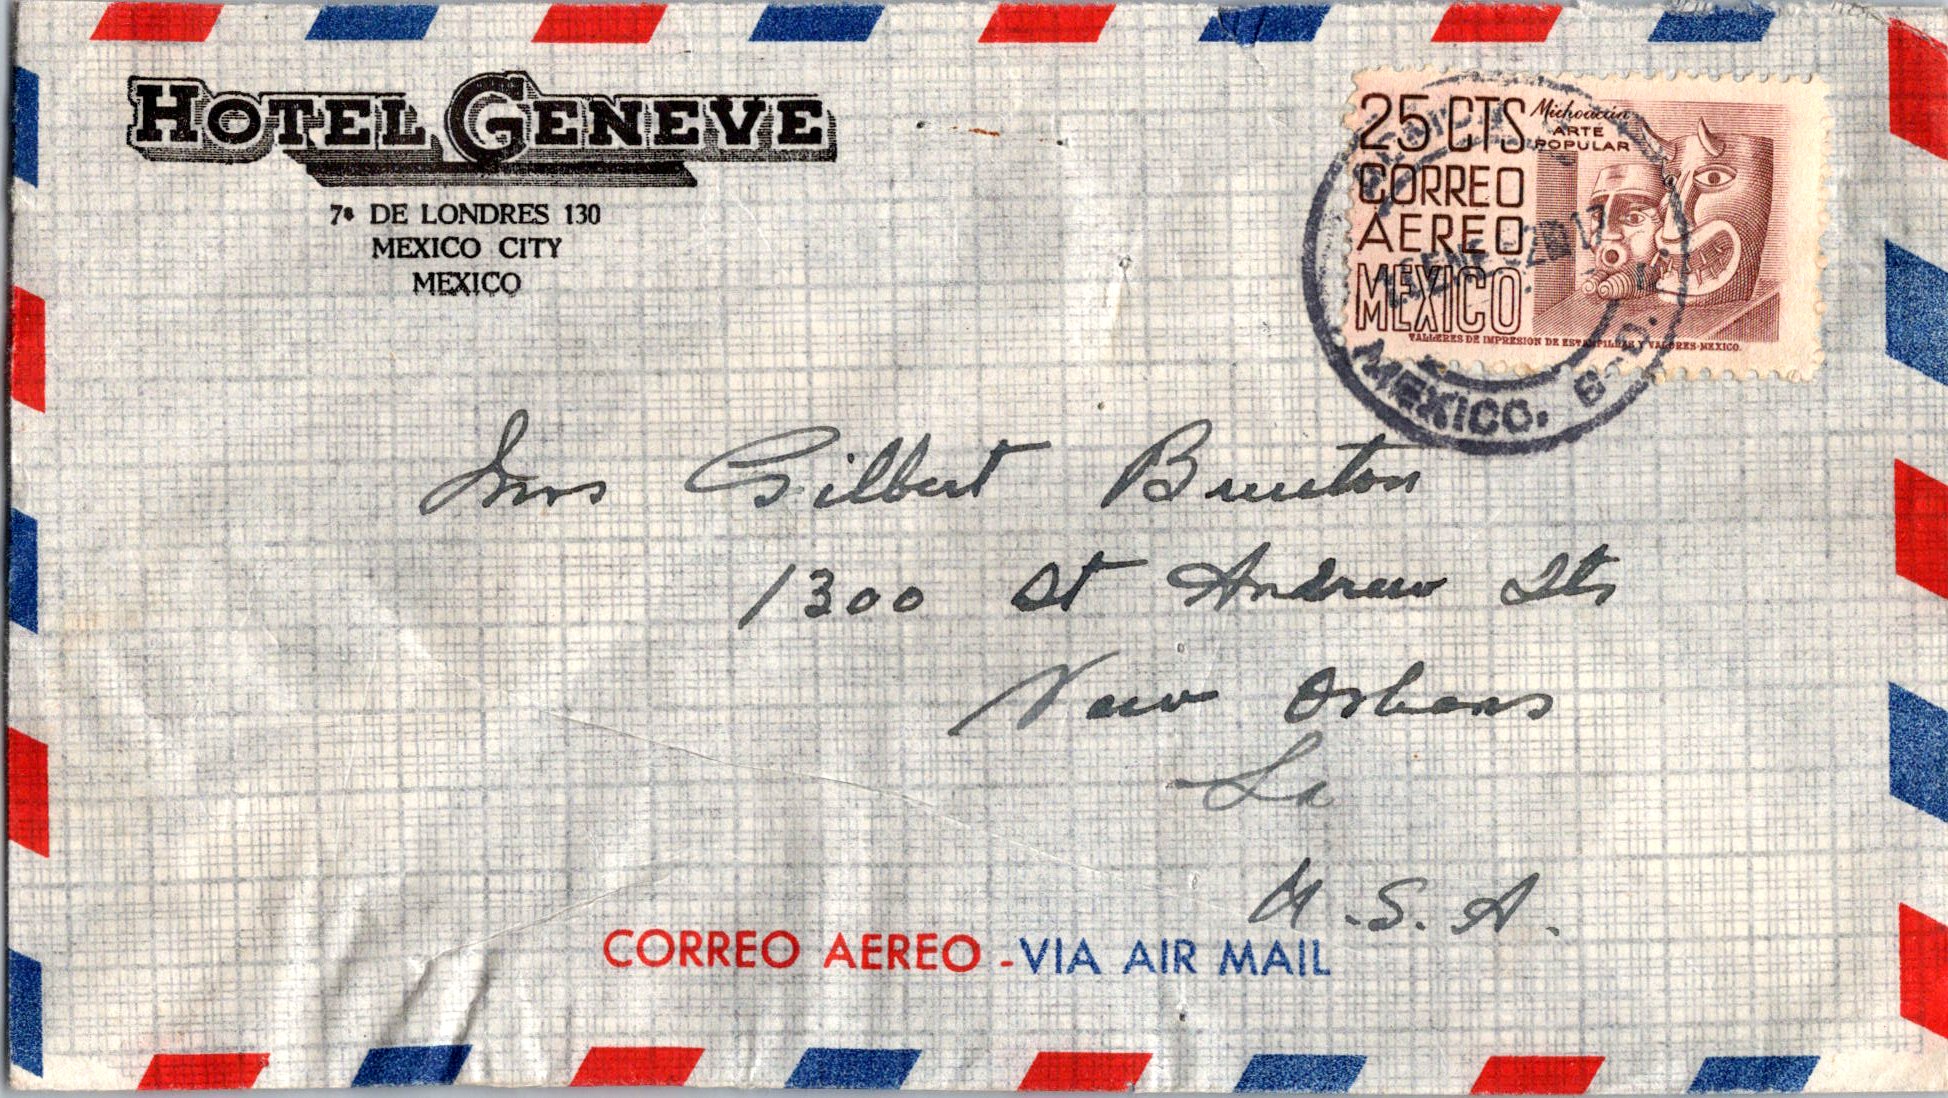 HOTEL GENEVE
7ª DE LONDRES 130
MEXICO CITY
MEXICO
25 CTS
CORREO
AEREO
MEXICO
Michoacán
ARTE
POPULAR
TALLERES DE IMPRESION DE ESTAMPILLAS Y VALORES-MEXICO.
MEXICO,
Mrs Gilbert Bruton
1300 St Andrew Sts
New Orleans
La
U.S.A.
CORREO AEREO - VIA AIR MAIL